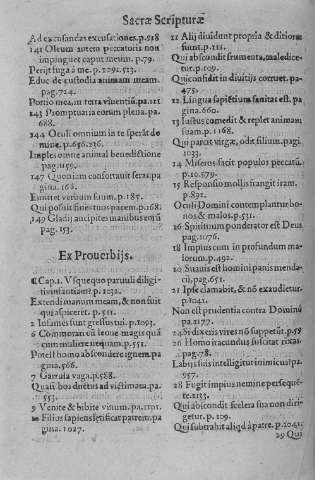 Sacræ Scripturæ
Ad excusandas excusationes. p.518
141 Oleum autem peccatoris non
impinguet caput meum. p.79.
Perijt fuga à me. p.1092.533.
Educ de custodia animam meam.
pag.724.
Portio mea, in terra viuentiũ. pa.121
143 Promptuaria eorum plena. pa.
688.
144 Oculi omnium in te sperãt domine.
p.656.236.
Imples omne animal benedictione
pag.1159.
147 Quoniam confortauit seras
pagina.168.
Emittet verbum suum. p.187.
Qui posuit fines tuos pacem. p.168.
149 Gladij ancipites manibus eorũ
pag.153.
Ex Prouerbijs.
¶Cap.1. Vsquequo paruuli diligitis
infantiam? p.1032.
Extendi manum meam, & non fuit
qui aspiceret. p.511.
2 Infames sunt gressus tui. p.1093.
6 Commorari cũ leone magis quã
cum muliere nequam. p.551.
Potest homo abscondere ignem. pa
gina.566.
7 Garrula vaga. p.588.
Quasi bos ductus ad victimam. pa.
553.
9 Venite & bibite vinum. pa.1191.
10 Filius sapiens lętificat patrem. pa
gina.1027.
11 Alij diuidunt propria & ditiores
sunt. p.111.
Qui abscondit frumenta, maledicetur.
p.109.
Qui confidit in diuitijs corruet. pa.
475.
12 Lingua sapiẽtium sanitas est. pa
gina.660.
13 Iustus comedit & replet animam
suam. p.1168.
Qui parcit virgæ, odit filium. pagi.
1033.
14 Miseros facit populos peccatũ.
p.10.579.
15 Responsio mollis frangit iram.
p.892.
Oculi Domini contemplantur bonos
& malos. p.531.
16 Spirituum ponderator est Deus
pag.1076.
18 Impius cum in profundum malorum.
p.492.
20 Suauis est homini panis mendacij.
pag.651.
21 Ipse clamabit, & nõ exaudietur.
p.1042.
Non est prudentia contra Dominũ
pa.1177.
24 Si dixeris vires nõ suppetũt. p.59
26 Homo iracundus suscitat rixas
pag.78.
Labijs suis intelligitur inimicus. pa.
957.
28 Fugit impius nemine persequẽte.
2133.
Qui abscondit scelera sua non dirigetur.
p.109.
Qui subtrahit aliqd à patre. p.1041.
29 Qui